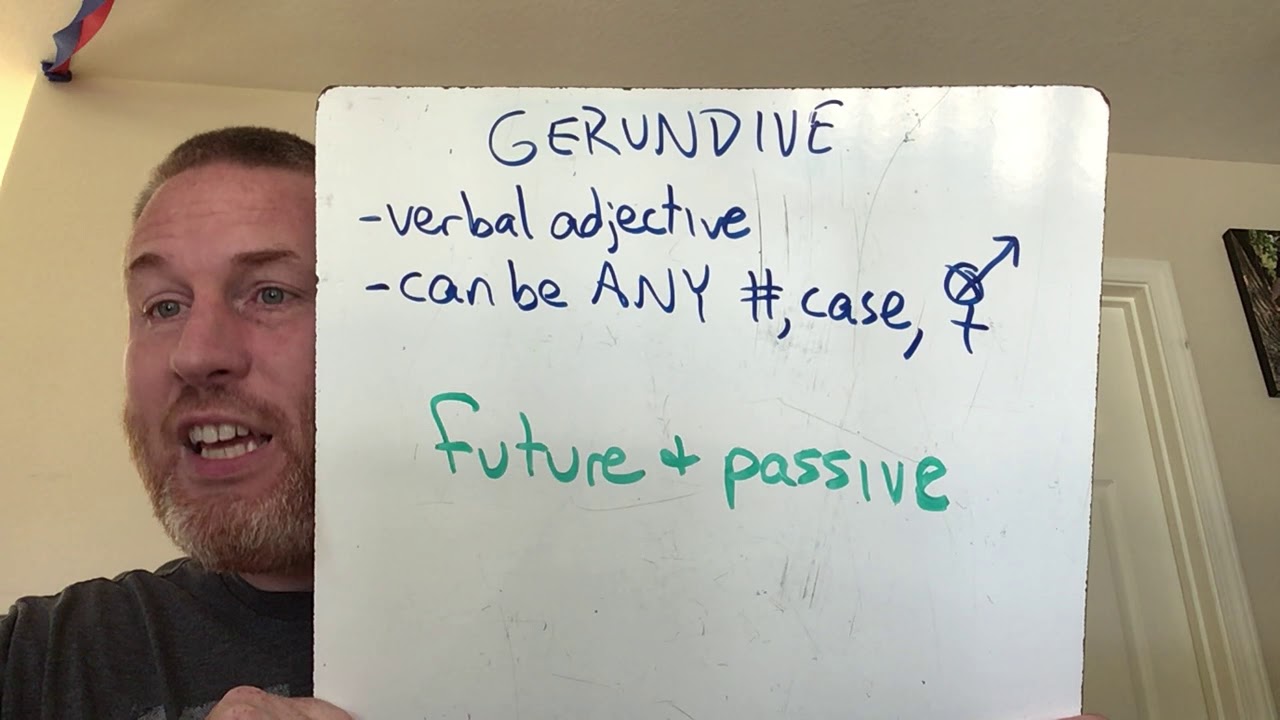 GERUNDIVE
-verbal adjective
-can be ANY #, case, ⚥
future + passive